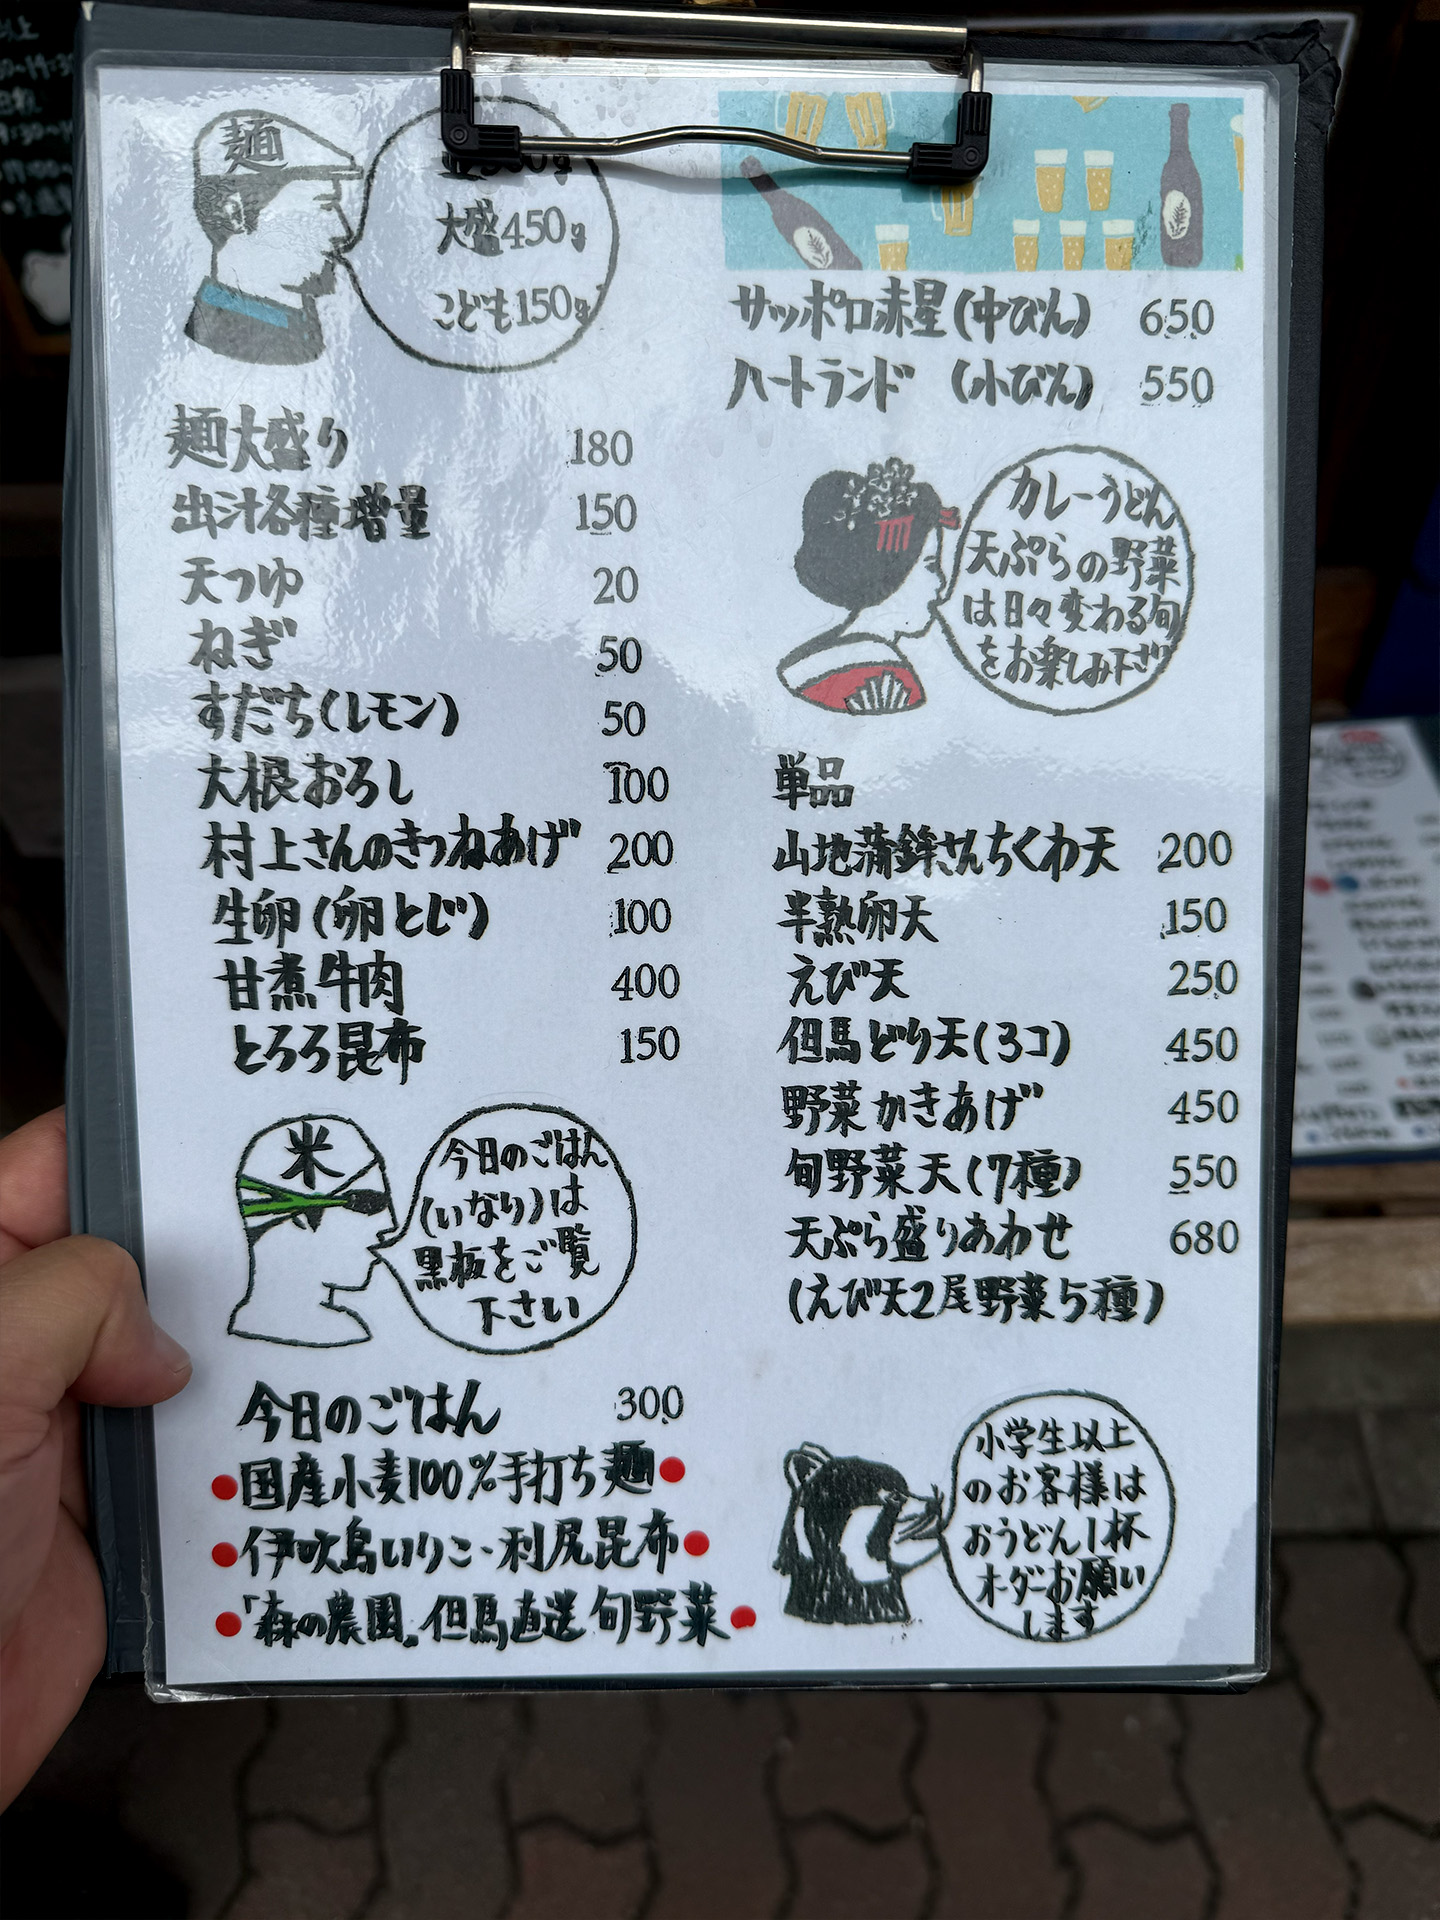 麺
大盛450g
こども150g
麺大盛り 180
出汁各種増量 150
天つゆ 20
ねぎ 50
すだち(レモン) 50
大根おろし 100
村上さんのきつねあげ 200
生卵(卵とじ) 100
甘煮牛肉 400
とろろ昆布 150
米
今日のごはん
(いなり)は
黒板をご覧
下さい
今日のごはん 300
国産小麦100%手打ち麺
伊吹島いりこ、利尻昆布
「森の農園」但馬直送旬野菜
サッポロ赤星(中びん) 650
ハートランド (小びん) 550
カレーうどん
天ぷらの野菜
は日々変わる旬
をお楽しみ下さい
単品
山地蒲鉾さんちくわ天 200
半熟卵天 150
えび天 250
但馬どり天(3コ) 450
野菜かきあげ 450
旬野菜天(7種) 550
天ぷら盛りあわせ 680
(えび天2尾野菜5種)
小学生以上
のお客様は
おうどん1杯
オーダーお願い
します